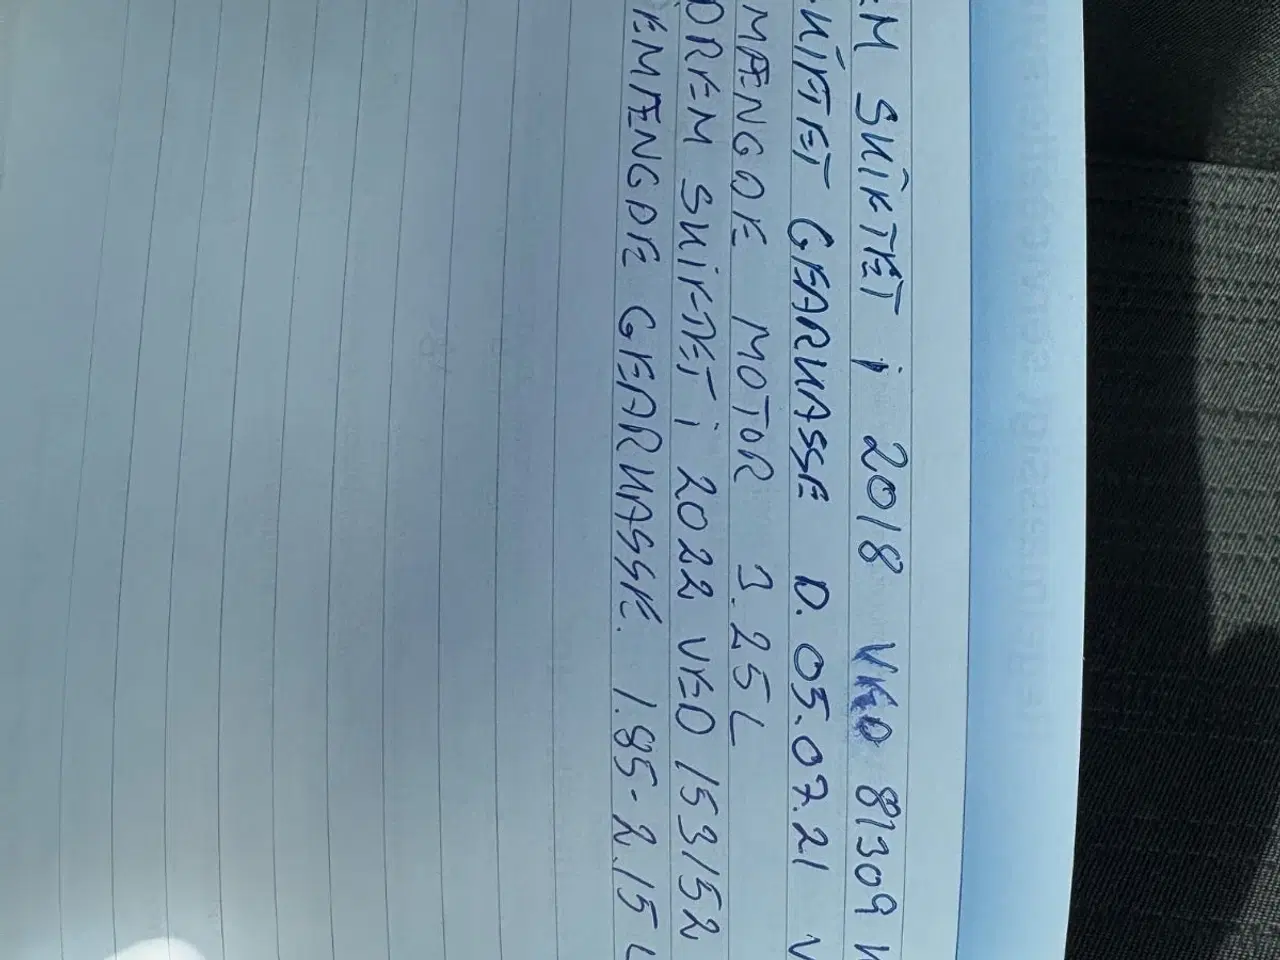 EM SKIFTET i 2018 VED 81309 K
SKIFTET GEARKASSE D. 05.07.21 V
MÆNGDE MOTOR 3.25L
OREM SKIFTET i 2022 VED 153152
EMÆNGDE GEARKASSE. 1.95-2.15 L